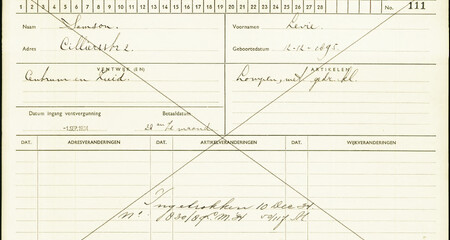 1 2 3 4 5 6 7 8 9 10 11 12 13 14 15 16 17 18 19 20 21 22 23 24 25 26 27 28 No. 111
Naam Samson. Voornamen Levie.
Adres Cilliersstr 2. Geboortedatum 12-12-1895
VENTWIJK (EN) ARTIKELEN
Centrum en Zuid. Lompen, met gebr. kl.
Datum ingang ventvergunning Betaaldatum
-1 SEP. 1934 23en d. maand
DAT. ADRESVERANDERINGEN DAT. ARTIKELVERANDERINGEN DAT. WIJKVERANDERINGEN
Ingetrokken 10 Dec 34
No